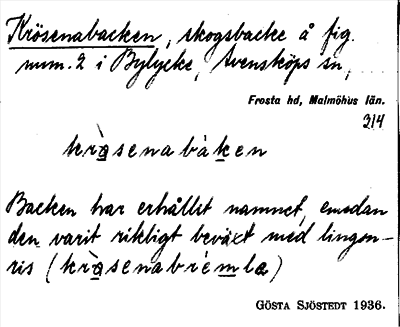 Krösenabacken, skogsbacke å fig.
num. 2 i Bylycke, Svensköps sn,
Frosta hd, Malmöhus län.
314
krą̀senabàḵen
Backen har erhållit namnet, emedan
den varit rikligt beväxt med lingon-
ris (krą̀senabrèmlą)
GÖSTA SJÖSTEDT 1936.